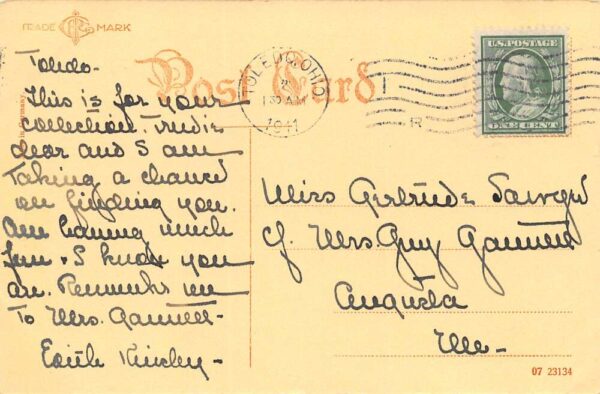 TRADE MARK
Post Card
TOLEDO, OHIO
130 AM
1911
U.S. POSTAGE
ONE CENT
Toledo-
This is for your
collection. Trudie
dear and I am
Taking a chance
on finding you.
Am having much
fun & I know you
are. Remember me
To Mrs. Gannett-
Edith Kinsley-
Miss Gertrude Sawyer
c/o Mrs Guy Gannett
Augusta
Me-
07 23134